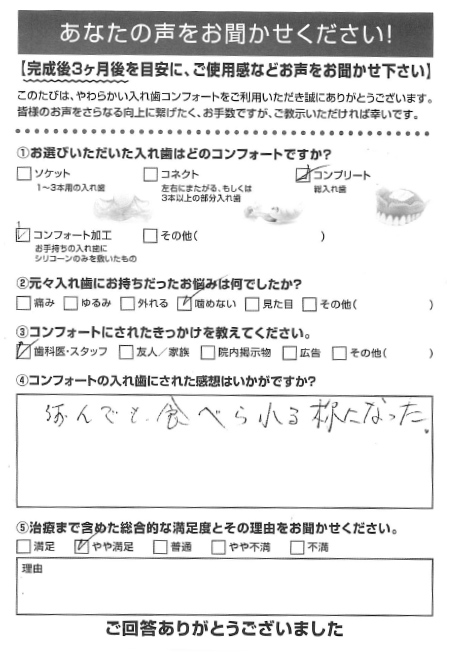 あなたの声をお聞かせください!
【完成後3ヶ月後を目安に、ご使用感などお声をお聞かせ下さい】
このたびは、やわらかい入れ歯コンフォートをご利用いただき誠にありがとうございます。
皆様のお声をさらなる向上に繋げたく、お手数ですが、ご教示いただければ幸いです。
①お選びいただいた入れ歯はどのコンフォートですか?
ソケット コネクト コンプリート
1〜3本用の入れ歯 左右にまたがる、もしくは 総入れ歯
3本以上の部分入れ歯
コンフォート加工 その他( )
お手持ちの入れ歯に
シリコーンのみを敷いたもの
②元々入れ歯にお持ちだったお悩みは何でしたか?
痛み ゆるみ 外れる 噛めない 見た目 その他( )
③コンフォートにされたきっかけを教えてください。
歯科医・スタッフ 友人/家族 院内掲示物 広告 その他( )
④コンフォートの入れ歯にされた感想はいかがですか?
んでも食べられる様になった。
⑤治療まで含めた総合的な満足度とその理由をお聞かせください。
満足 やや満足 普通 やや不満 不満
理由
ご回答ありがとうございました